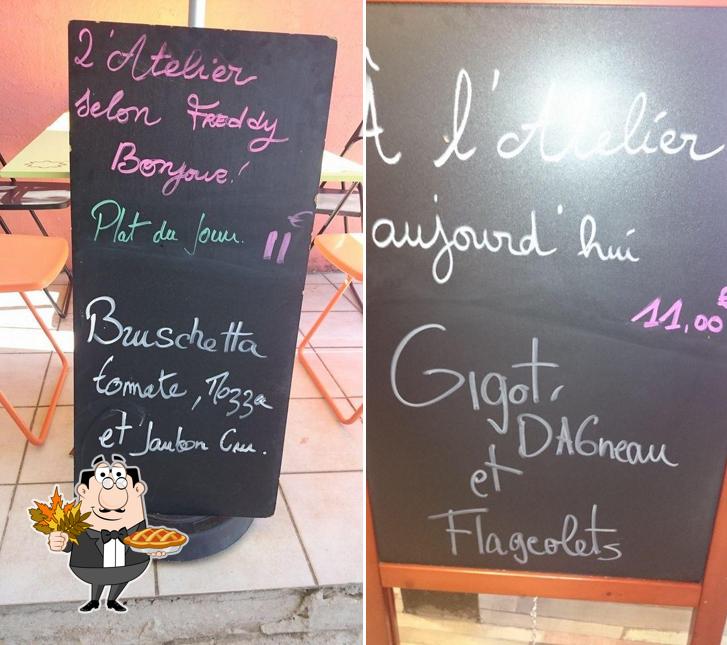 L'Atelier
selon FREDDY
Bonjour!
Plat du jour. 11€
Bruschetta
tomate, Mozza
et Jambon Cru.
À l'Atelier
aujourd'hui
11,00€
Gigot,
DAGneau
et
Flageolets